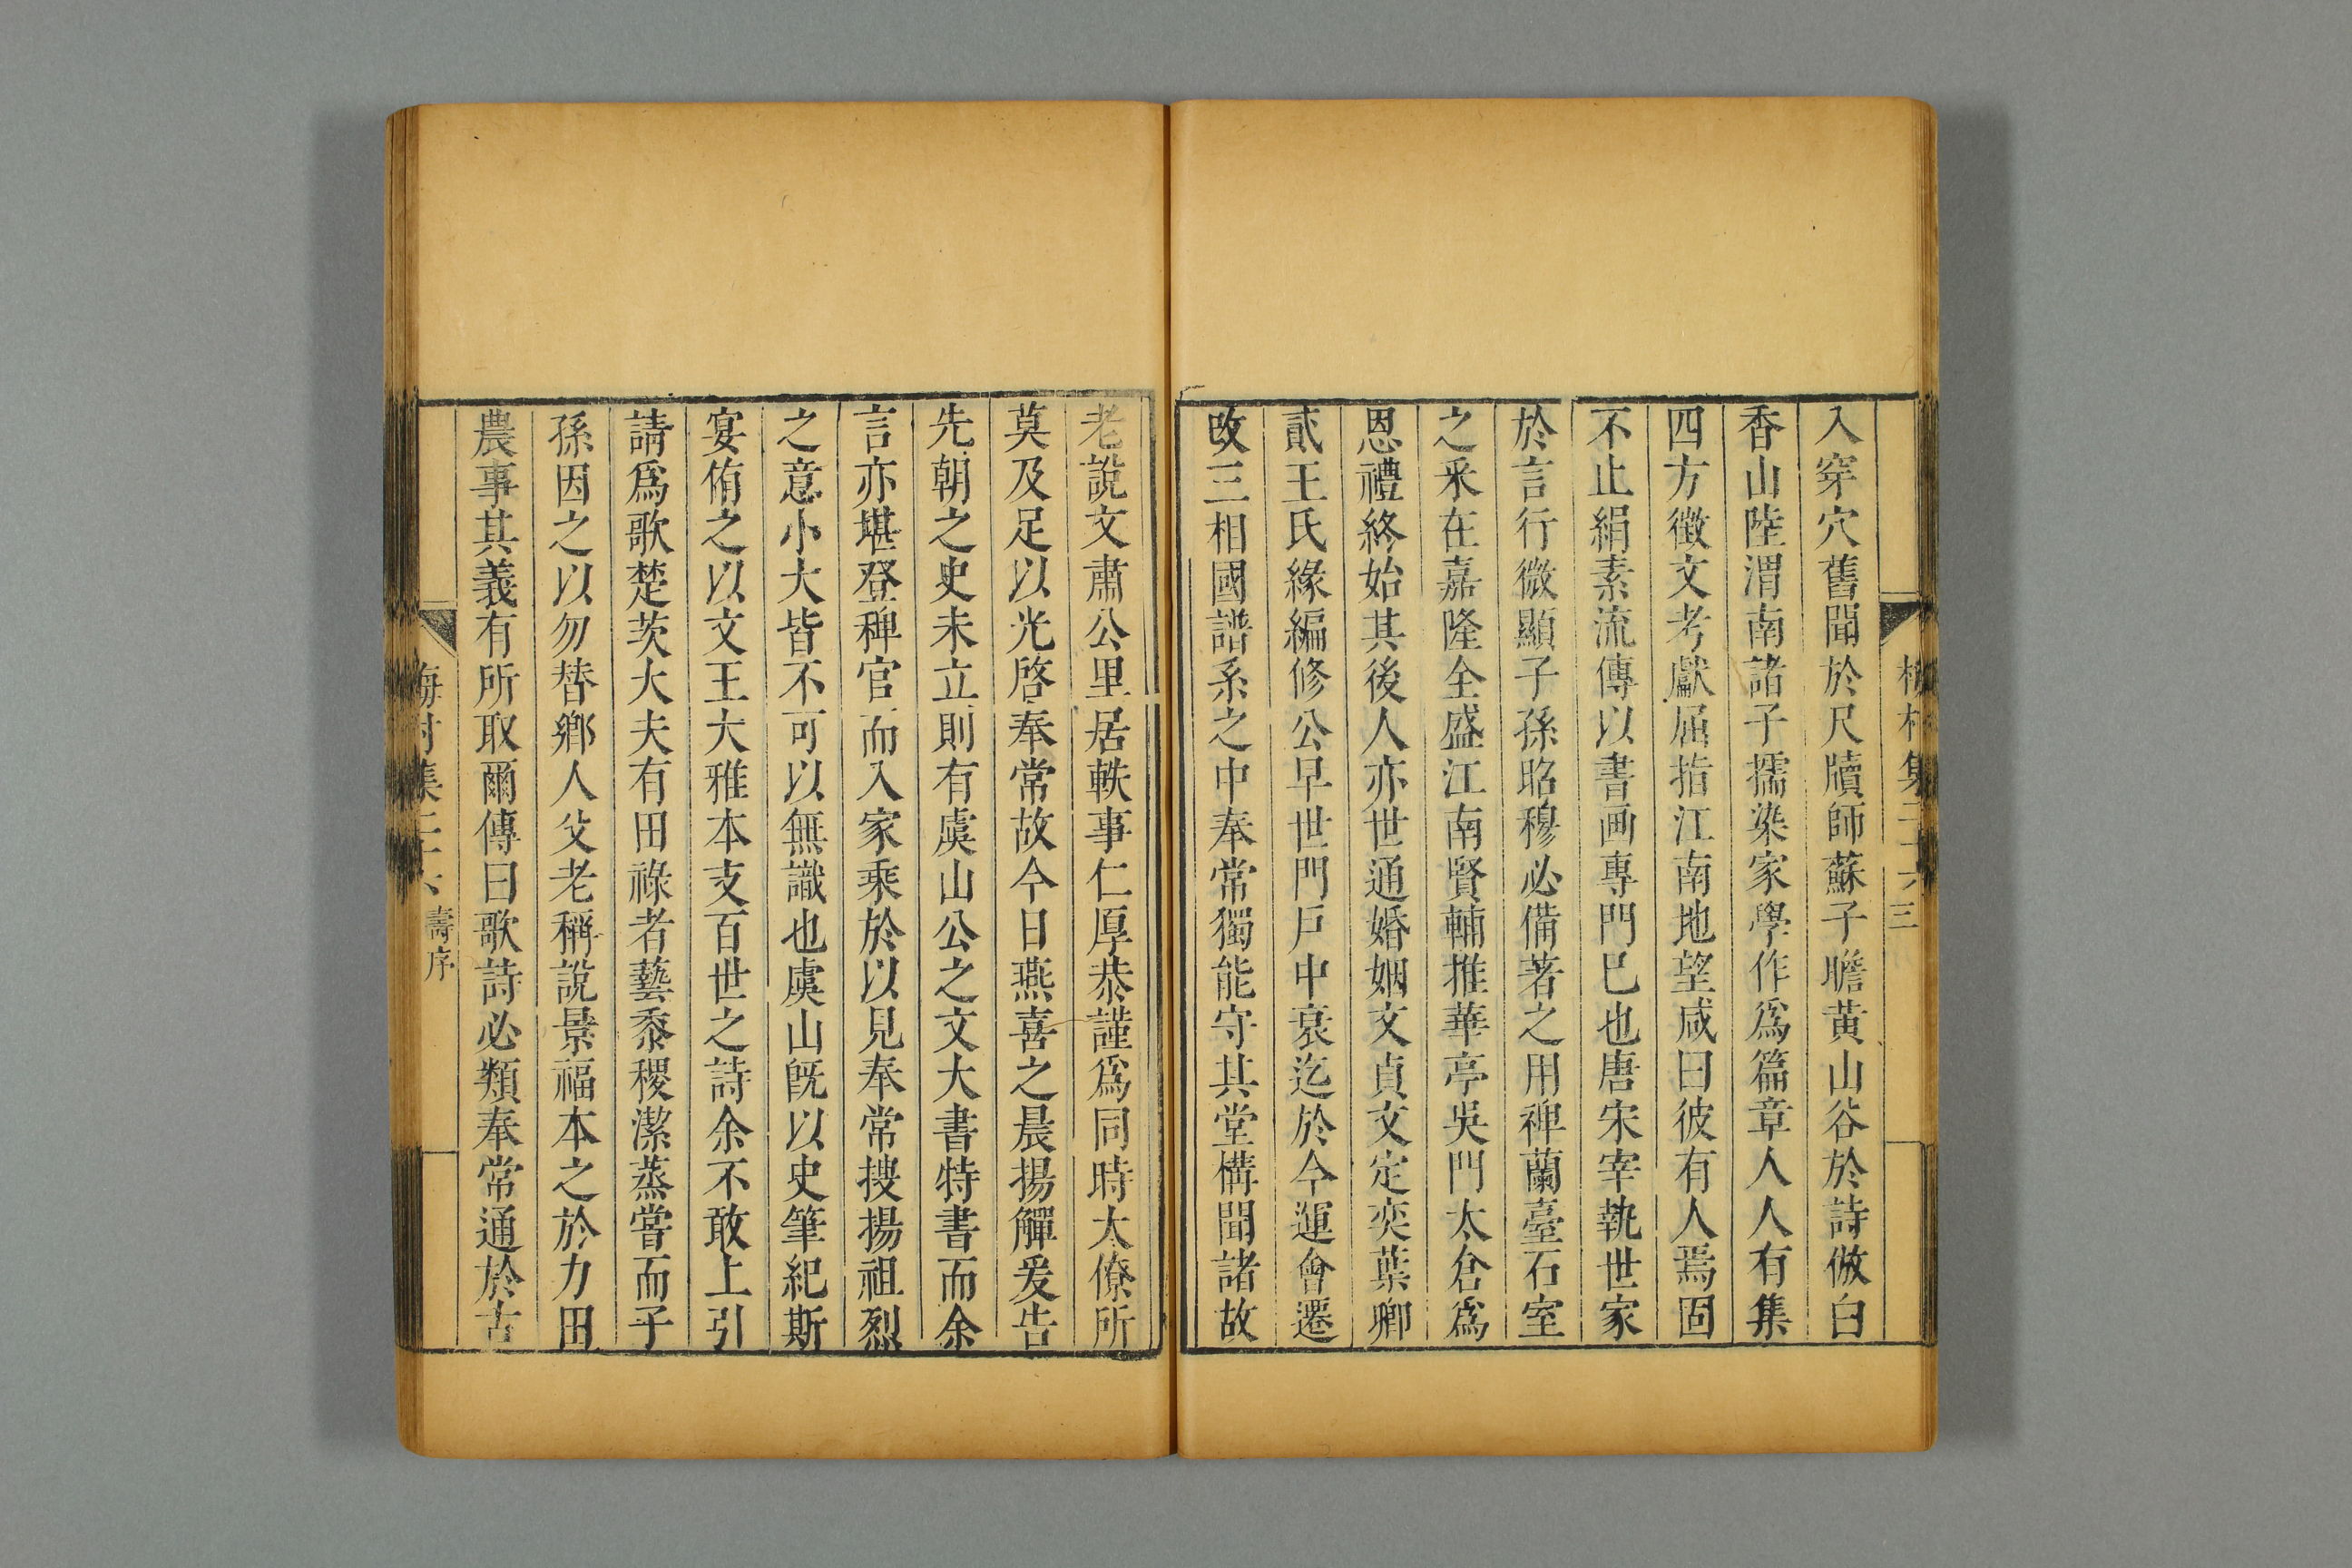 入穿穴舊聞於尺牘師蘇子瞻黃山谷於詩倣白
香山陸渭南諸子擩染家學作爲篇章人人有集
四方徵文考獻屈指江南地望咸曰彼有人焉固
不止絹素流傳以書画專門巳也唐宋宰執世家
於言行微顯子孫昭穆必備著之用裨蘭臺石室
之釆在嘉隆全盛江南賢輔推華亭吳門太倉爲
恩禮終始其後人亦世通婚姻文貞文定奕葉卿
貳王氏緣編修公早世門戶中衰迄於今運會遷
改三相國譜系之中奉常獨能守其堂構聞諸故
老說文肅公里居軼事仁厚恭謹爲同時大僚所
莫及足以光啓奉常故今日燕喜之晨揚觶爰告
先朝之史未立則有虞山公之文大書特書而余
言亦堪登稗官而入家乘於以見奉常搜揚祖烈
之意小大皆不可以無識也虞山旣以史筆紀斯
宴侑之以文王大雅本支百世之詩余不敢上引
請爲歌楚茨大夫有田祿者藝黍稷潔蒸嘗而子
孫因之以勿替鄉人父老稱說景福本之於力田
農事其義有所取爾傳曰歌詩必類奉常通於古
梅村集二十六 壽序